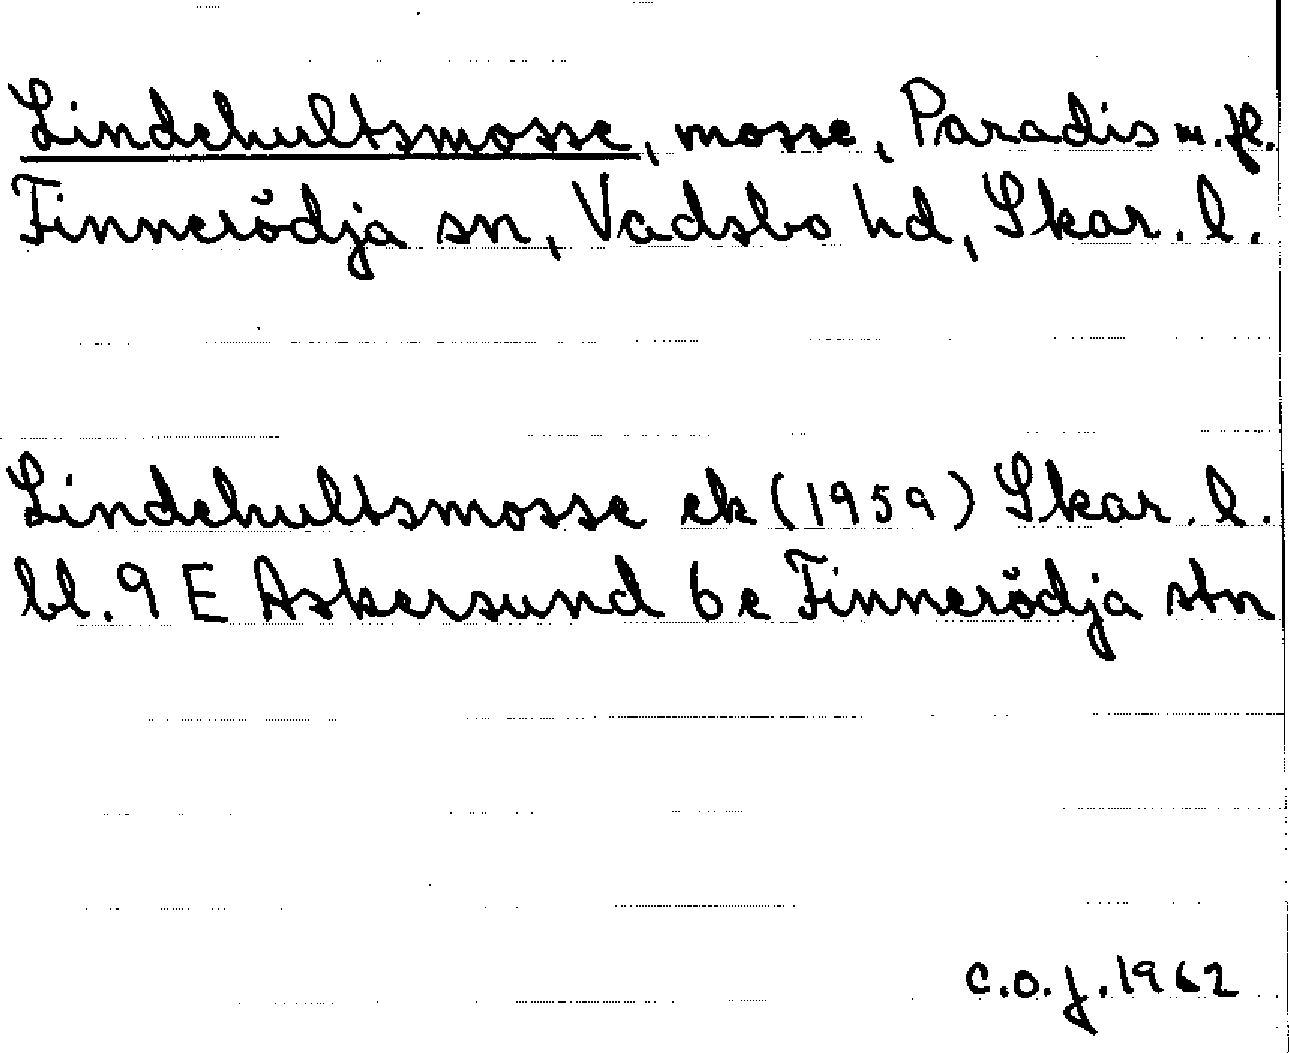 Lindehultsmosse, mosse, Paradis m.fl.
Finnerödja sn, Vadsbo hd, Skar. l.
Lindehultsmosse ek (1959) Skar. l.
bl. 9 E Askersund 6 e Finnerödja stn
C.O.J. 1962